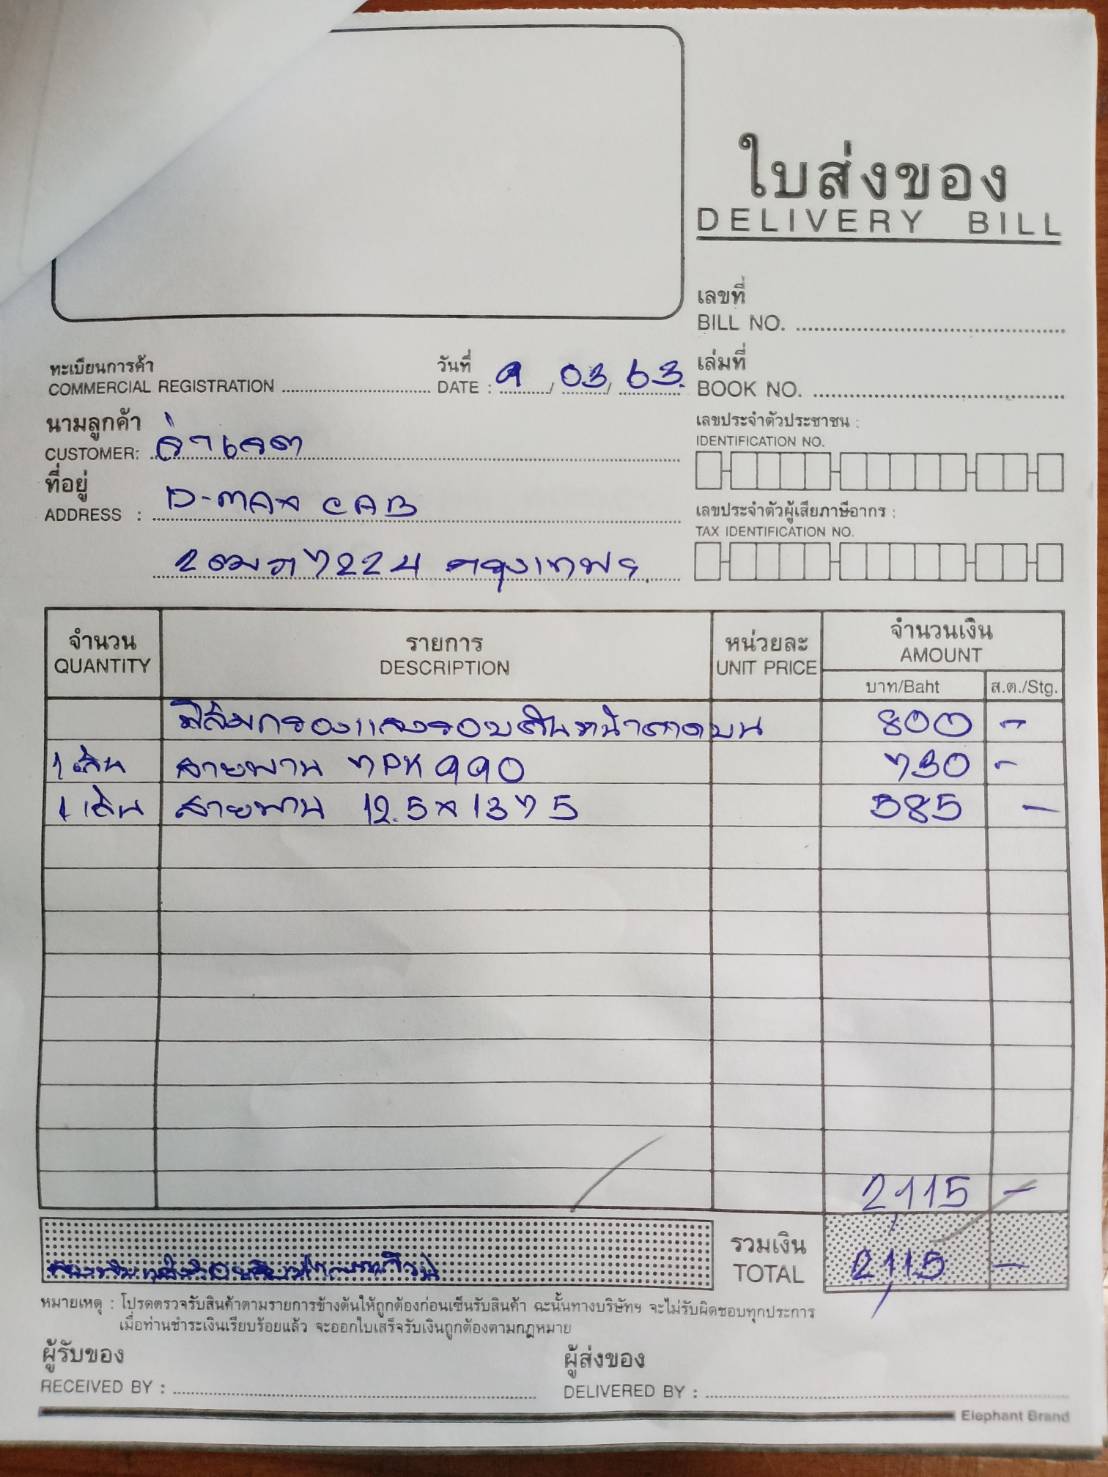 ใบส่งของ
DELIVERY BILL
เลขที่
BILL NO.
ทะเบียนการค้า
COMMERCIAL REGISTRATION
วันที่
DATE : 9 / 03 / 63.
เล่มที่
BOOK NO.
นามลูกค้า
CUSTOMER:
เลขประจำตัวประชาชน :
IDENTIFICATION NO.
ที่อยู่
ADDRESS : D-MAX CAB
เลขประจำตัวผู้เสียภาษีอากร :
TAX IDENTIFICATION NO.
7224 กรุงเทพฯ
จำนวน รายการ หน่วยละ จำนวนเงิน
QUANTITY DESCRIPTION UNIT PRICE AMOUNT
บาท/Baht ส.ต./Stg.
ฟิล์มกรองแสงรอบคันหน้าคาดบน 800 -
1 เส้น สายพาน 7PK 990 730 -
1 เส้น สายพาน 12.5 x 1375 585 -
2115 -
รวมเงิน
TOTAL 2115 -
หมายเหตุ : โปรดตรวจรับสินค้าตามรายการข้างต้นให้ถูกต้องก่อนเซ็นรับสินค้า ฉะนั้นทางบริษัทฯ จะไม่รับผิดชอบทุกประการ
เมื่อท่านชำระเงินเรียบร้อยแล้ว จะออกใบเสร็จรับเงินถูกต้องตามกฎหมาย
ผู้รับของ
RECEIVED BY :
ผู้ส่งของ
DELIVERED BY :
Elephant Brand